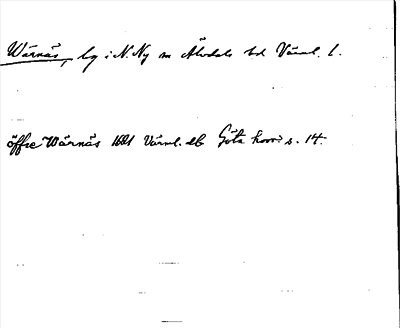 Wärnäs, by i N. Ny sn Älvdals hd Värml. l.
öffre Wärnäs 1681 Värml. db Göta hovr s. 14.